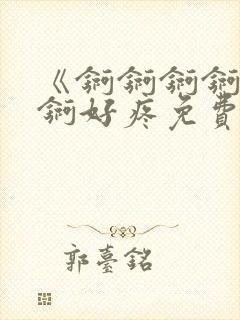 《锕锕锕锕
锕好疼免費
郭臺銘